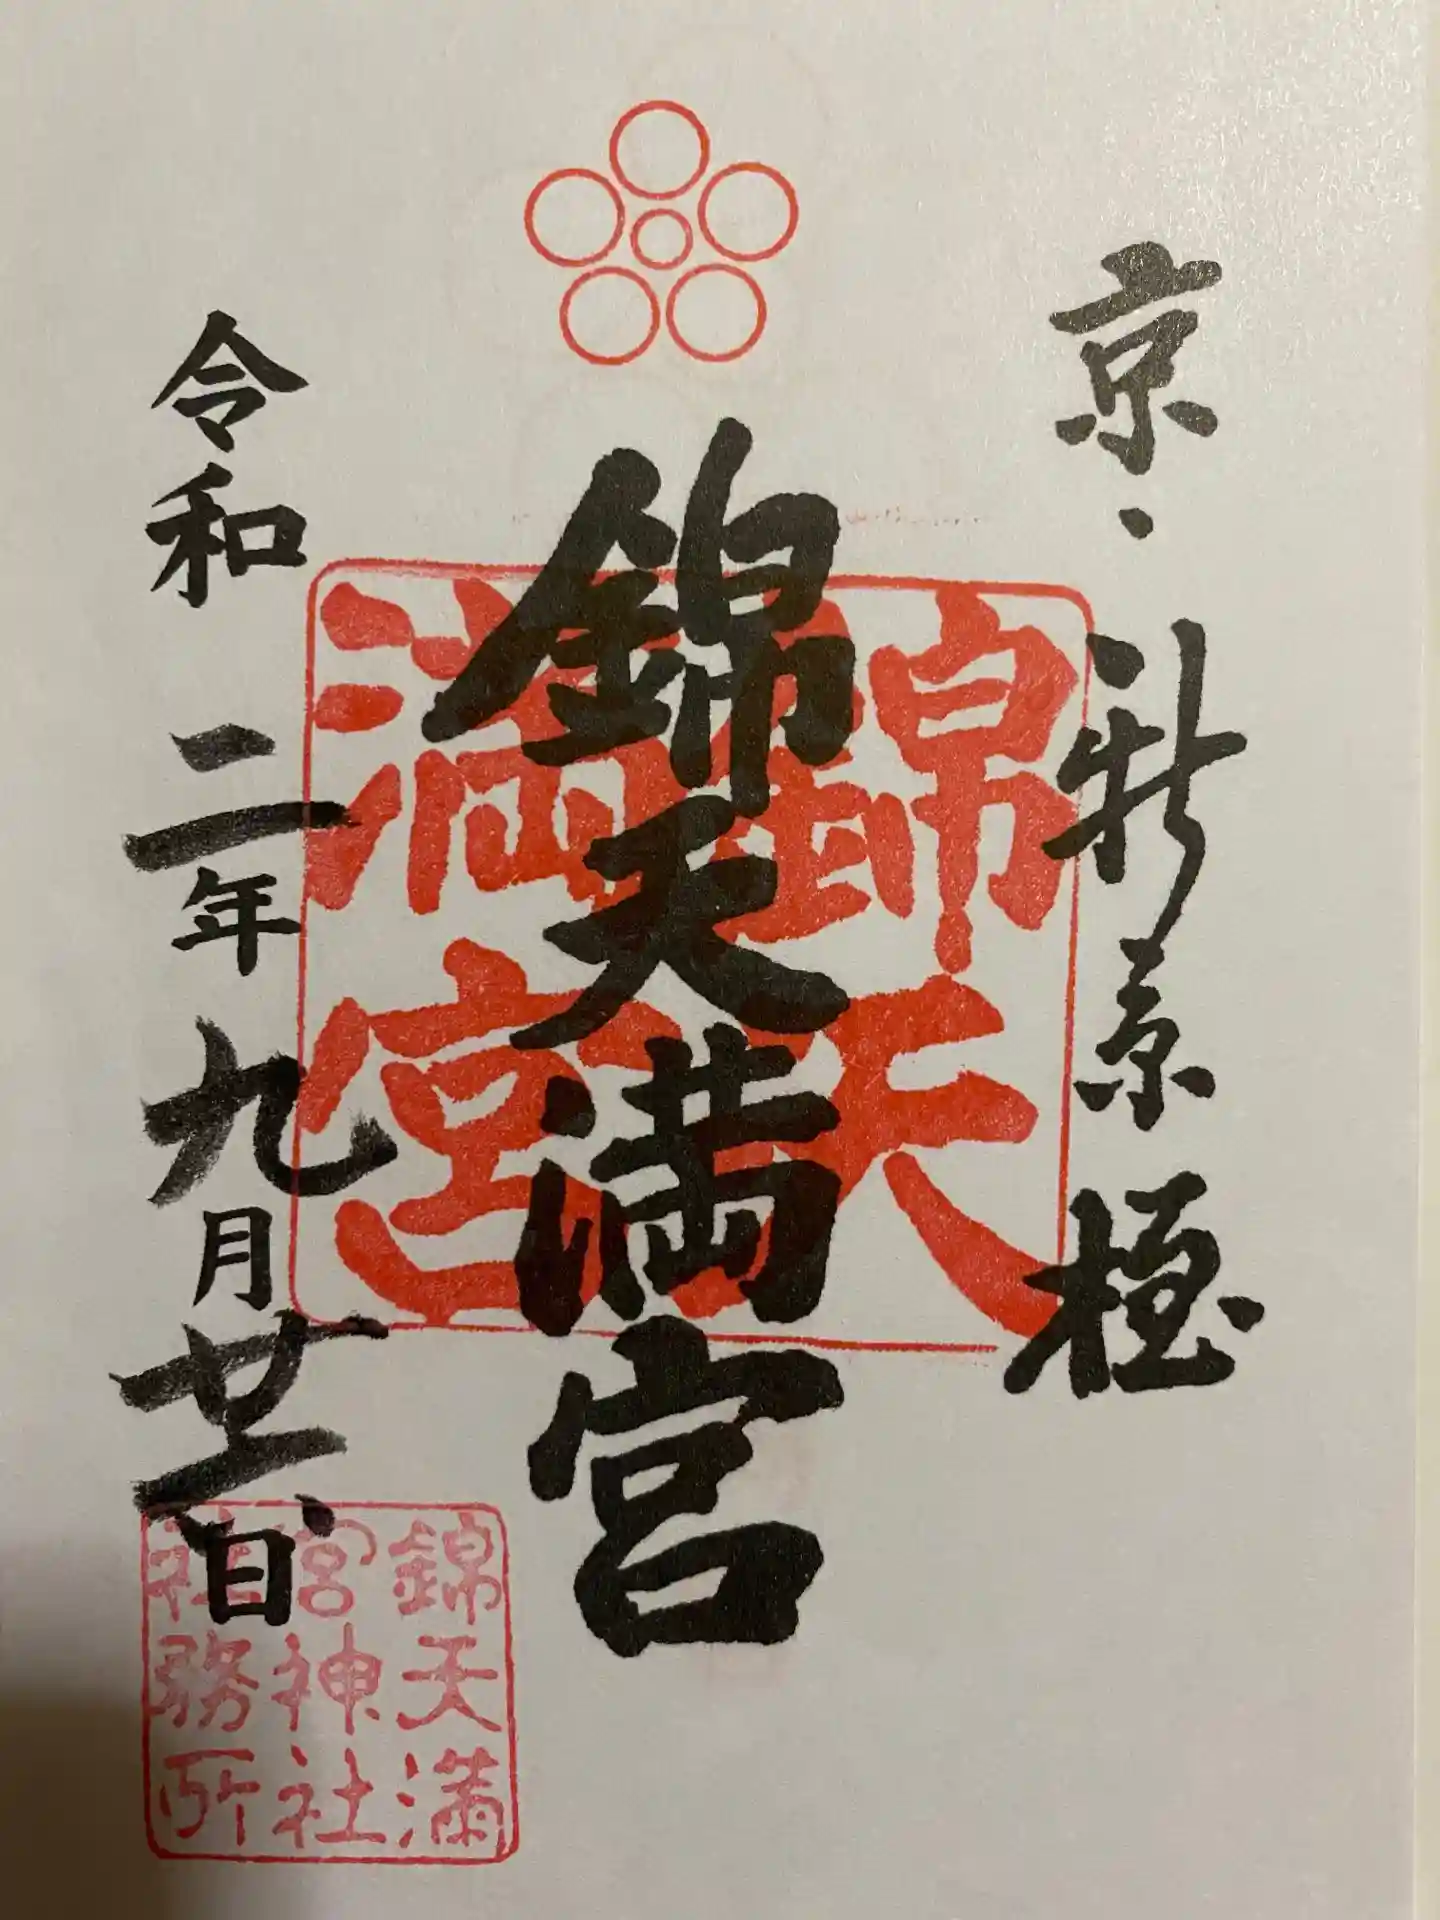 京・新京極
錦天満宮
令和二年九月廿六日
錦天
満宮
錦天満
宮神社
社務所